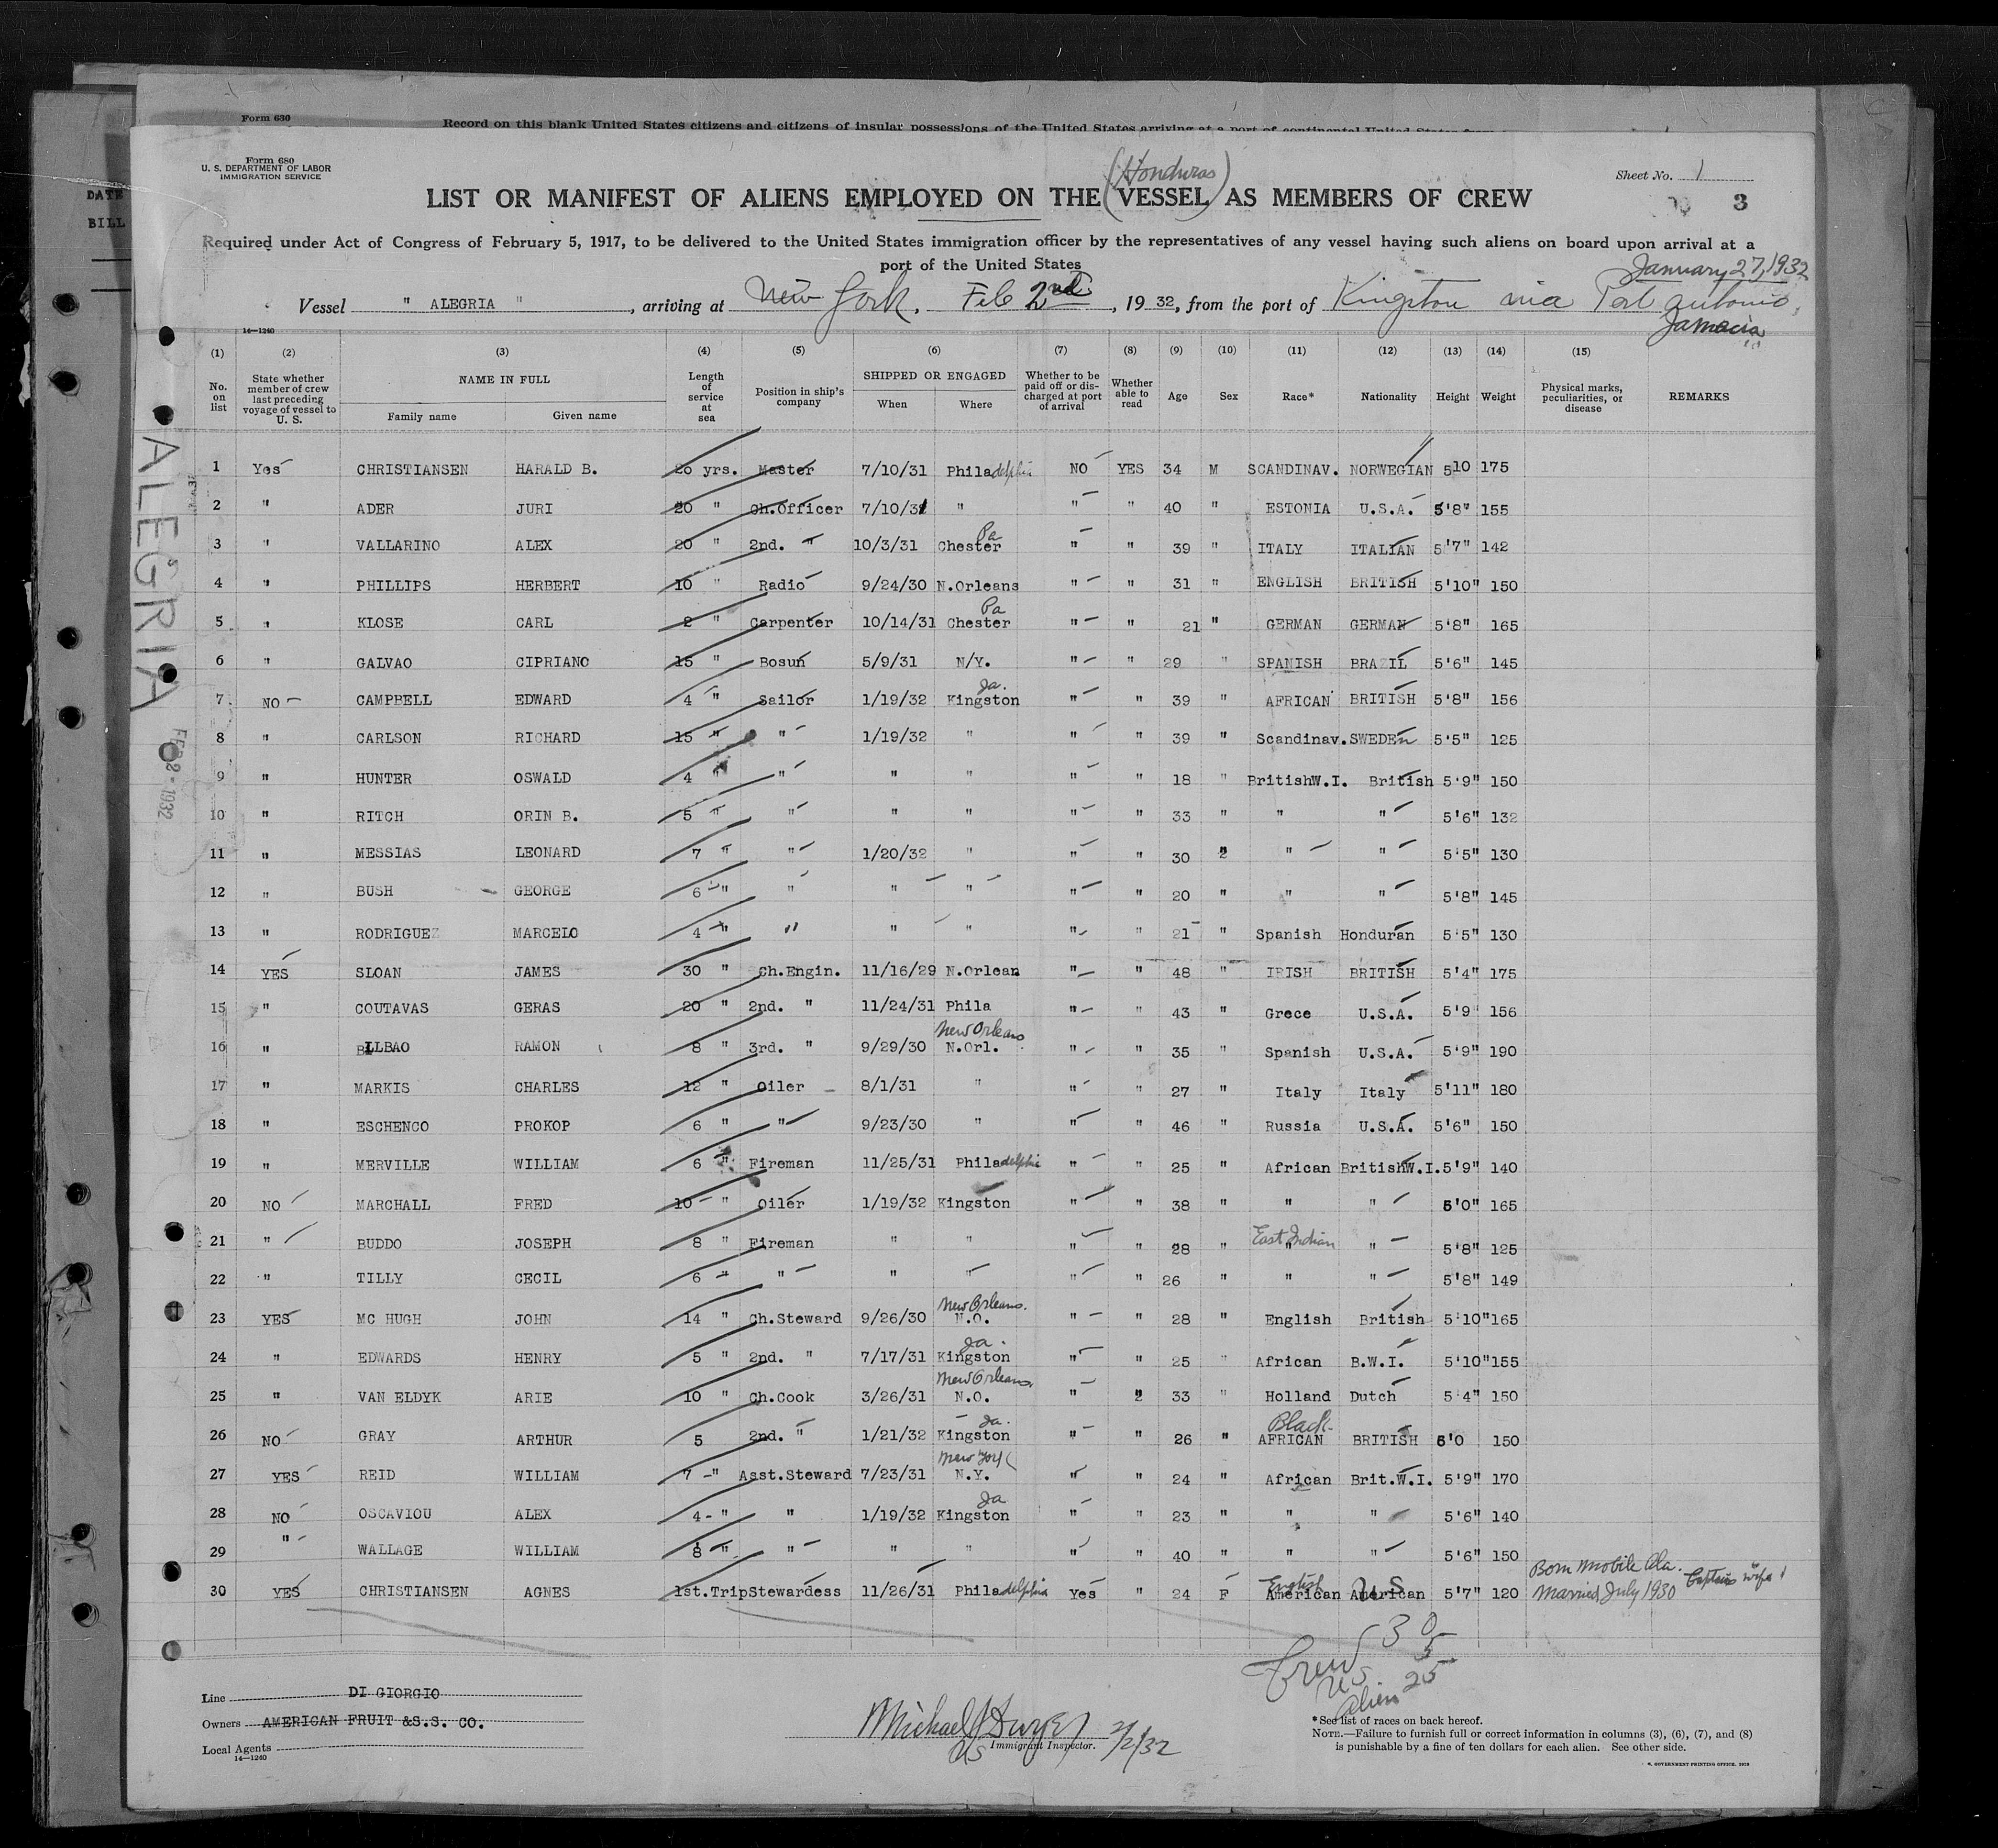 Form 630
Record on this blank United States citizens and citizens of insular possessions of the United States arriving at a port of continental United States from
DATE
BILL
Form 680
U. S. DEPARTMENT OF LABOR
IMMIGRATION SERVICE
Sheet No. 1
3
(Honduras)
LIST OR MANIFEST OF ALIENS EMPLOYED ON THE (VESSEL) AS MEMBERS OF CREW
Required under Act of Congress of February 5, 1917, to be delivered to the United States immigration officer by the representatives of any vessel having such aliens on board upon arrival at a
port of the United States
January 27, 1932
Vessel " ALEGRIA " , arriving at New York, Feb 2nd , 1932, from the port of Kingston via Port Antonio,
Jamacia
14—1240
(1) (2) (3) (4) (5) (6) (7) (8) (9) (10) (11) (12) (13) (14) (15)
No. on list State whether member of crew last preceding voyage of vessel to U. S. NAME IN FULL Family name Given name Length of service at sea Position in ship's company SHIPPED OR ENGAGED When Where Whether to be paid off or discharged at port of arrival Whether able to read Age Sex Race* Nationality Height Weight Physical marks, peculiarities, or disease REMARKS
ALEGRIA
FEB 2 - 1932
1 Yes CHRISTIANSEN HARALD B. 20 yrs. Master 7/10/31 Philadelphia NO YES 34 M SCANDINAV. NORWEGIAN 510 175
2 " ADER JURI 20 " Ch.Officer 7/10/31 " " " 40 " ESTONIA U.S.A. 5'8" 155
3 " VALLARINO ALEX 20 " 2nd. " 10/3/31 Chester Pa " " 39 " ITALY ITALIAN 5'7" 142
4 " PHILLIPS HERBERT 10 " Radio 9/24/30 N.Orleans " " 31 " ENGLISH BRITISH 5'10" 150
5 " KLOSE CARL 2 " Carpenter 10/14/31 Chester Pa " " 21 " GERMAN GERMAN 5'8" 165
6 " GALVAO CIPRIANO 15 " Bosun 5/9/31 N/Y. " " 29 " SPANISH BRAZIL 5'6" 145
7 NO CAMPBELL EDWARD 4 " Sailor 1/19/32 Kingston Ja. " " 39 " AFRICAN BRITISH 5'8" 156
8 " CARLSON RICHARD 15 " " 1/19/32 " " " 39 " Scandinav. SWEDEn 5'5" 125
9 " HUNTER OSWALD 4 " " " " " " 18 " BritishW.I. British 5'9" 150
10 " RITCH ORIN B. 5 " " " " " " 33 " " " 5'6" 132
11 " MESSIAS LEONARD 7 " " 1/20/32 " " " 30 " " " 5'5" 130
12 " BUSH GEORGE 6 " " " " " " 20 " " " 5'8" 145
13 " RODRIGUEZ MARCELO 4 " " " " " " 21 " Spanish Honduran 5'5" 130
14 YES SLOAN JAMES 30 " Ch.Engin. 11/16/29 N.Orlean " " 48 " IRISH BRITISH 5'4" 175
15 " COUTAVAS GERAS 20 " 2nd. " 11/24/31 Phila " " 43 " Grece U.S.A. 5'9" 156
16 " BILBAO RAMON 8 " 3rd. " 9/29/30 New Orleans N.Orl. " " 35 " Spanish U.S.A. 5'9" 190
17 " MARKIS CHARLES 12 " Oiler 8/1/31 " " " 27 " Italy Italy 5'11" 180
18 " ESCHENCO PROKOP 6 " " 9/23/30 " " " 46 " Russia U.S.A. 5'6" 150
19 " MERVILLE WILLIAM 6 " Fireman 11/25/31 Philadelphia " " 25 " African BritishW.I. 5'9" 140
20 NO MARCHALL FRED 10 " Oiler 1/19/32 Kingston " " 38 " " " 6'0" 165
21 " BUDDO JOSEPH 8 " Fireman " " " " 28 " East Indian " " 5'8" 125
22 " TILLY CECIL 6 " " " " " " 26 " " " 5'8" 149
23 YES MC HUGH JOHN 14 " Ch.Steward 9/26/30 New Orleans. N.O. " " 28 " English British 5'10" 165
24 " EDWARDS HENRY 5 " 2nd. " 7/17/31 Kingston Ja. " " 25 " African B.W.I. 5'10" 155
25 " VAN ELDYK ARIE 10 " Ch.Cook 3/26/31 New Orleans N.O. " " 33 " Holland Dutch 5'4" 150
26 NO GRAY ARTHUR 5 2nd. " 1/21/32 Kingston Ja. " " 26 " Black AFRICAN BRITISH 6'0 150
27 YES REID WILLIAM 7 " Asst.Steward 7/23/31 New York N.Y. " " 24 " African Brit.W.I. 5'9" 170
28 NO OSCAVIOU ALEX 4 " " 1/19/32 Kingston Ja " " 23 " " " 5'6" 140
29 " WALLAGE WILLIAM 8 " " " " " " 40 " " " 5'6" 150
30 YES CHRISTIANSEN AGNES 1st.Trip Stewardess 11/26/31 Philadelphia Yes " 24 F English American U S American 5'7" 120 Born Mobile Ala. Married July 1930 Captains wife
Crew 30
U S 5
Alien 25
Line DI GIORGIO
Owners AMERICAN FRUIT &S.S. CO.
Local Agents
14—1240
Michael J Dwyer 2/2/32
US Immigrant Inspector.
*See list of races on back hereof.
NOTE.—Failure to furnish full or correct information in columns (3), (6), (7), and (8)
is punishable by a fine of ten dollars for each alien. See other side.
GOVERNMENT PRINTING OFFICE